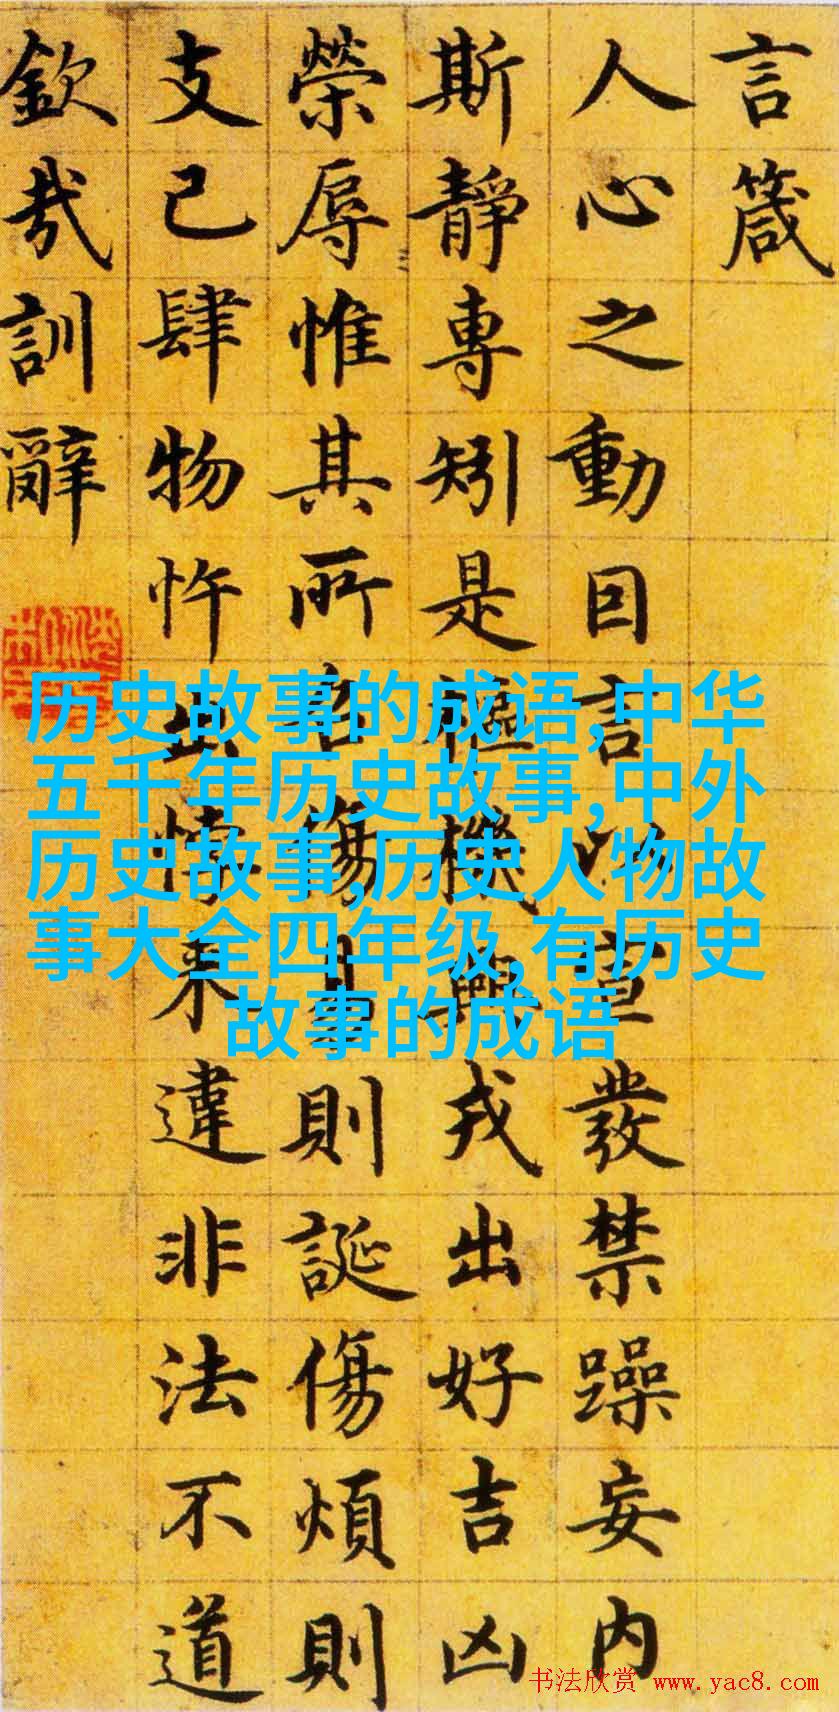 言箴
人心之動囙言以宣發禁躁妄内
斯靜專矧是樞機興戎出好吉凶
榮辱惟其所召傷易則誕傷煩則
支己肆物忤出悖来違非法不道
欽哉訓辭
历史故事的成语,中华
五千年历史故事,中外
历史故事,历史人物故
事大全四年级,有历史
故事的成语
书法欣赏 www.yac8.com